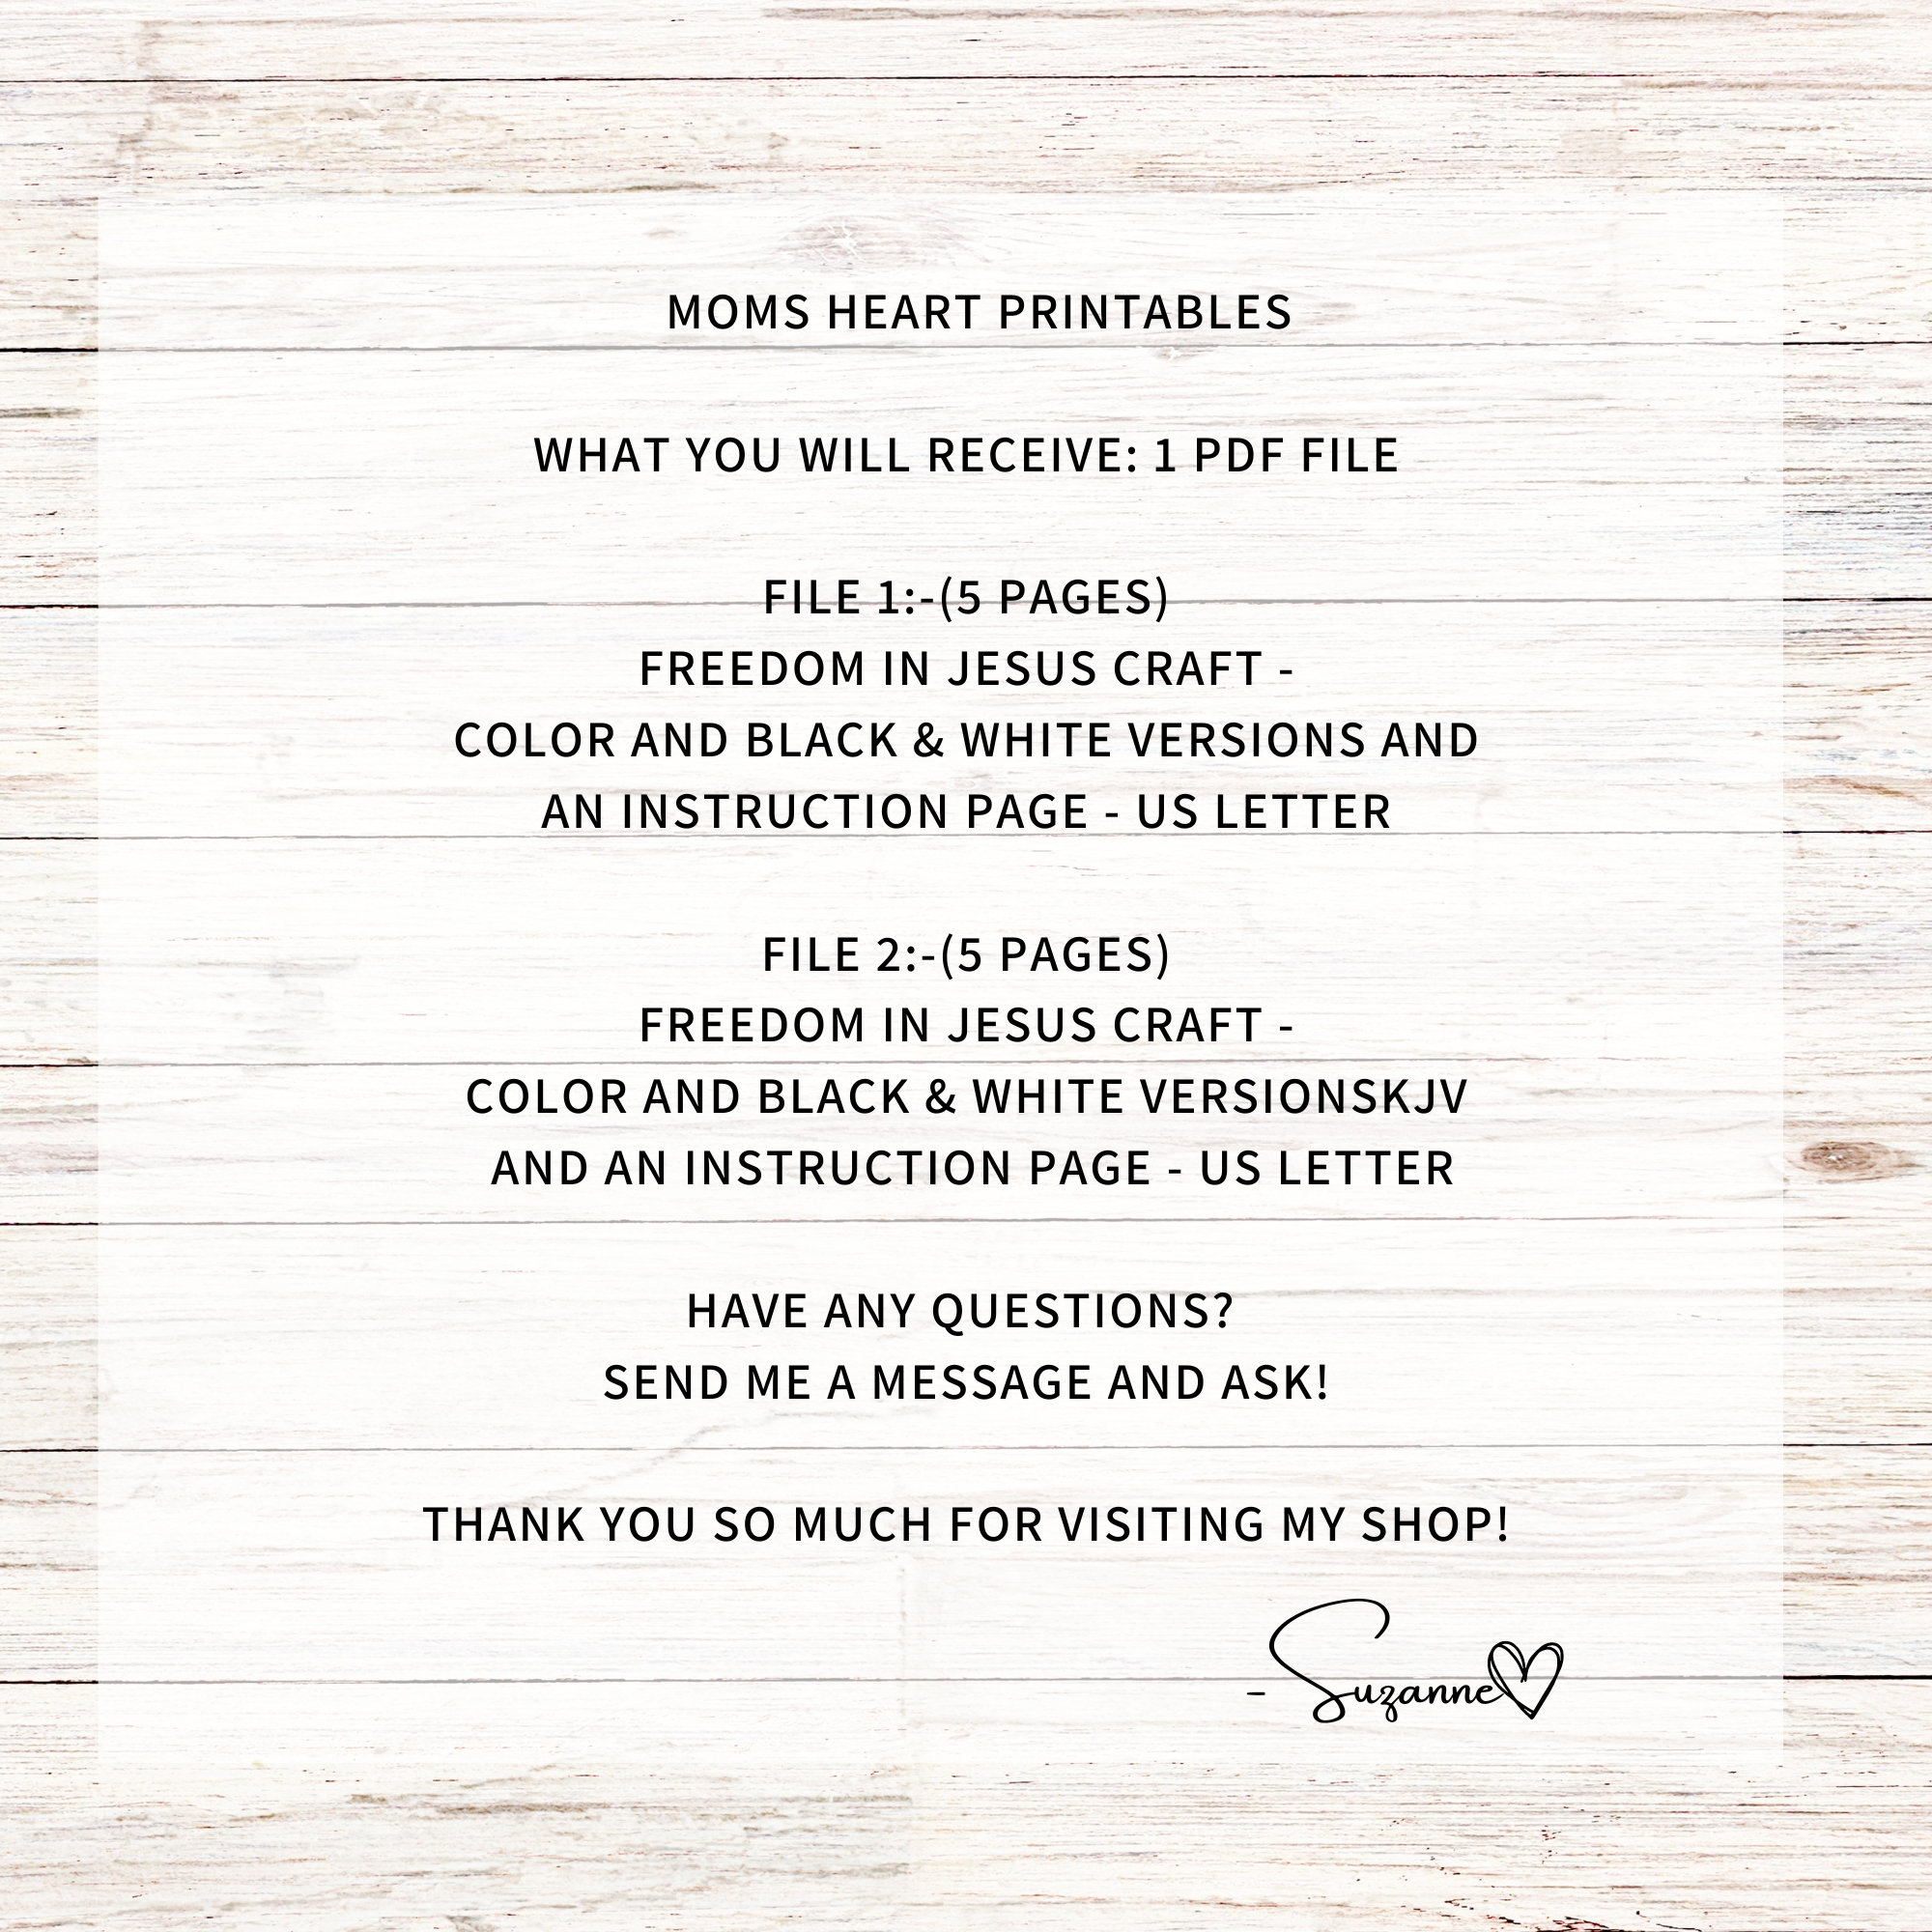 MOMS HEART PRINTABLES
WHAT YOU WILL RECEIVE: 1 PDF FILE
FILE 1:-(5 PAGES)
FREEDOM IN JESUS CRAFT -
COLOR AND BLACK & WHITE VERSIONS AND
AN INSTRUCTION PAGE - US LETTER
FILE 2:-(5 PAGES)
FREEDOM IN JESUS CRAFT -
COLOR AND BLACK & WHITE VERSIONSKJV
AND AN INSTRUCTION PAGE - US LETTER
HAVE ANY QUESTIONS?
SEND ME A MESSAGE AND ASK!
THANK YOU SO MUCH FOR VISITING MY SHOP!
- Suzanne